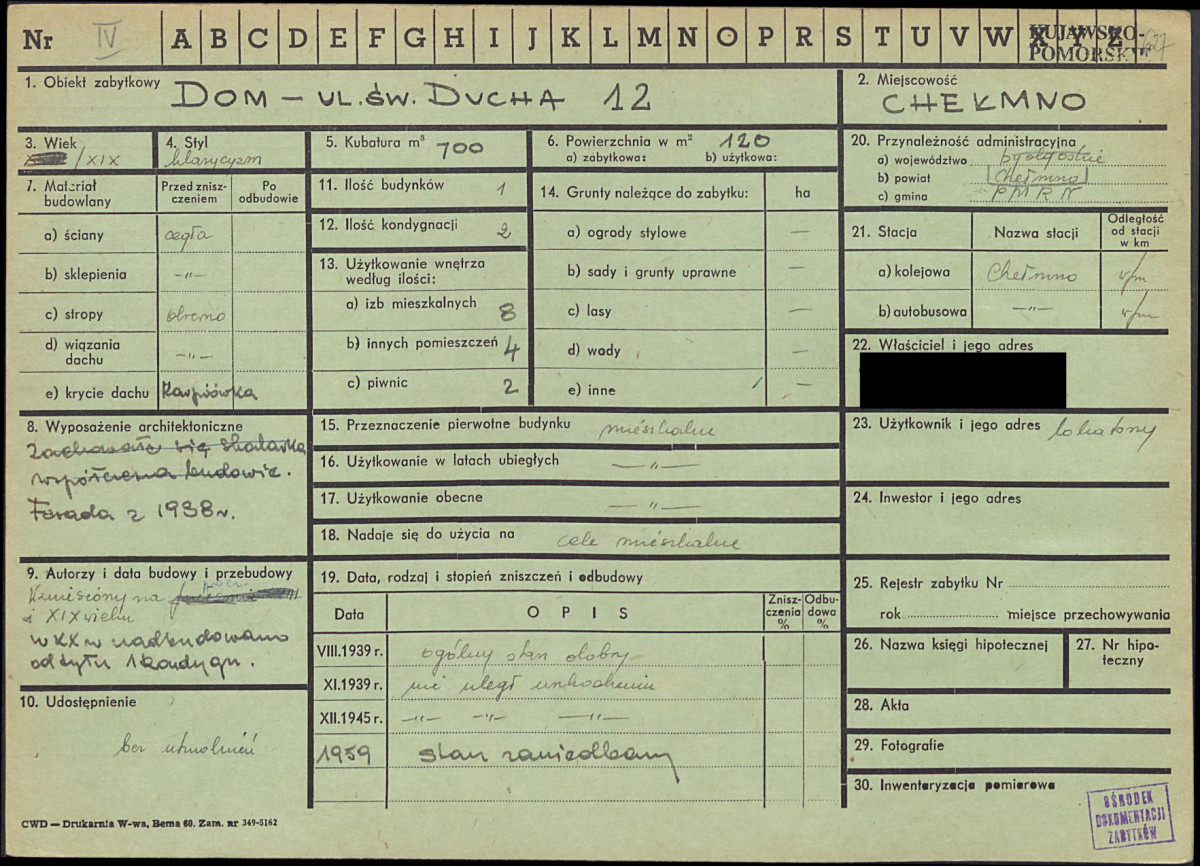 Nr IV A B C D E F G H I J K L M N O P R S T U V W X Y Z 627
KUJAWSKO-
POMORSKIE
1. Obiekt zabytkowy DOM – UL. ŚW. DUCHA 12
2. Miejscowość
CHEŁMNO
3. Wiek
/XIX
4. Styl
klasycyzm
5. Kubatura m³ 700
6. Powierzchnia w m² 120
a) zabytkowa: b) użytkowa:
20. Przynależność administracyjna
a) województwo bydgoskie
b) powiat Chełmno
c) gmina PMRN
7. Materiał budowlany
Przed znisz-
czeniem
Po
odbudowie
a) ściany cegła
b) sklepienia –"–
c) stropy drewno
d) wiązania
dachu –"–
e) krycie dachu Karpiówka
11. Ilość budynków 1
12. Ilość kondygnacji 2
13. Użytkowanie wnętrza
według ilości:
a) izb mieszkalnych 8
b) innych pomieszczeń 4
c) piwnic 2
14. Grunty należące do zabytku: ha
a) ogrody stylowe —
b) sady i grunty uprawne —
c) lasy —
d) wody —
e) inne / —
21. Stacja
Nazwa stacji
Odległość
od stacji
w km
a) kolejowa Chełmno w/m
b) autobusowa –"– w/m
22. Właściciel i jego adres
8. Wyposażenie architektoniczne
Zachowała się skalarka
współczesna budowie.
Fasada z 1938 r.
15. Przeznaczenie pierwotne budynku mieszkalne
16. Użytkowanie w latach ubiegłych –"–
17. Użytkowanie obecne –"–
18. Nadaje się do użycia na cele mieszkalne
23. Użytkownik i jego adres lokatorzy
24. Inwestor i jego adres
9. Autorzy i data budowy i przebudowy
Wzniesiony na
i XIX wieku
w XX w nadbudowano
od tyłu 1 kondygn.
10. Udostępnienie
bez utrudnień
19. Data, rodzaj i stopień zniszczeń i odbudowy
Data
OPIS
Znisz-
czenia
%
Odbu-
dowa
%
VIII.1939 r. ogólny stan dobry
XI.1939 r. nie uległ uszkodzeniu
XII.1945 r. –"– –"– –"–
1959 stan zaniedbany
25. Rejestr zabytku Nr
rok miejsce przechowywania
26. Nazwa księgi hipotecznej
27. Nr hipo-
teczny
28. Akta
29. Fotografie
30. Inwentaryzacja pomiarowa
OŚRODEK
DOKUMENTACJI
ZABYTKÓW
CWD — Drukarnia W-wa, Bema 60. Zam. nr 349-5162